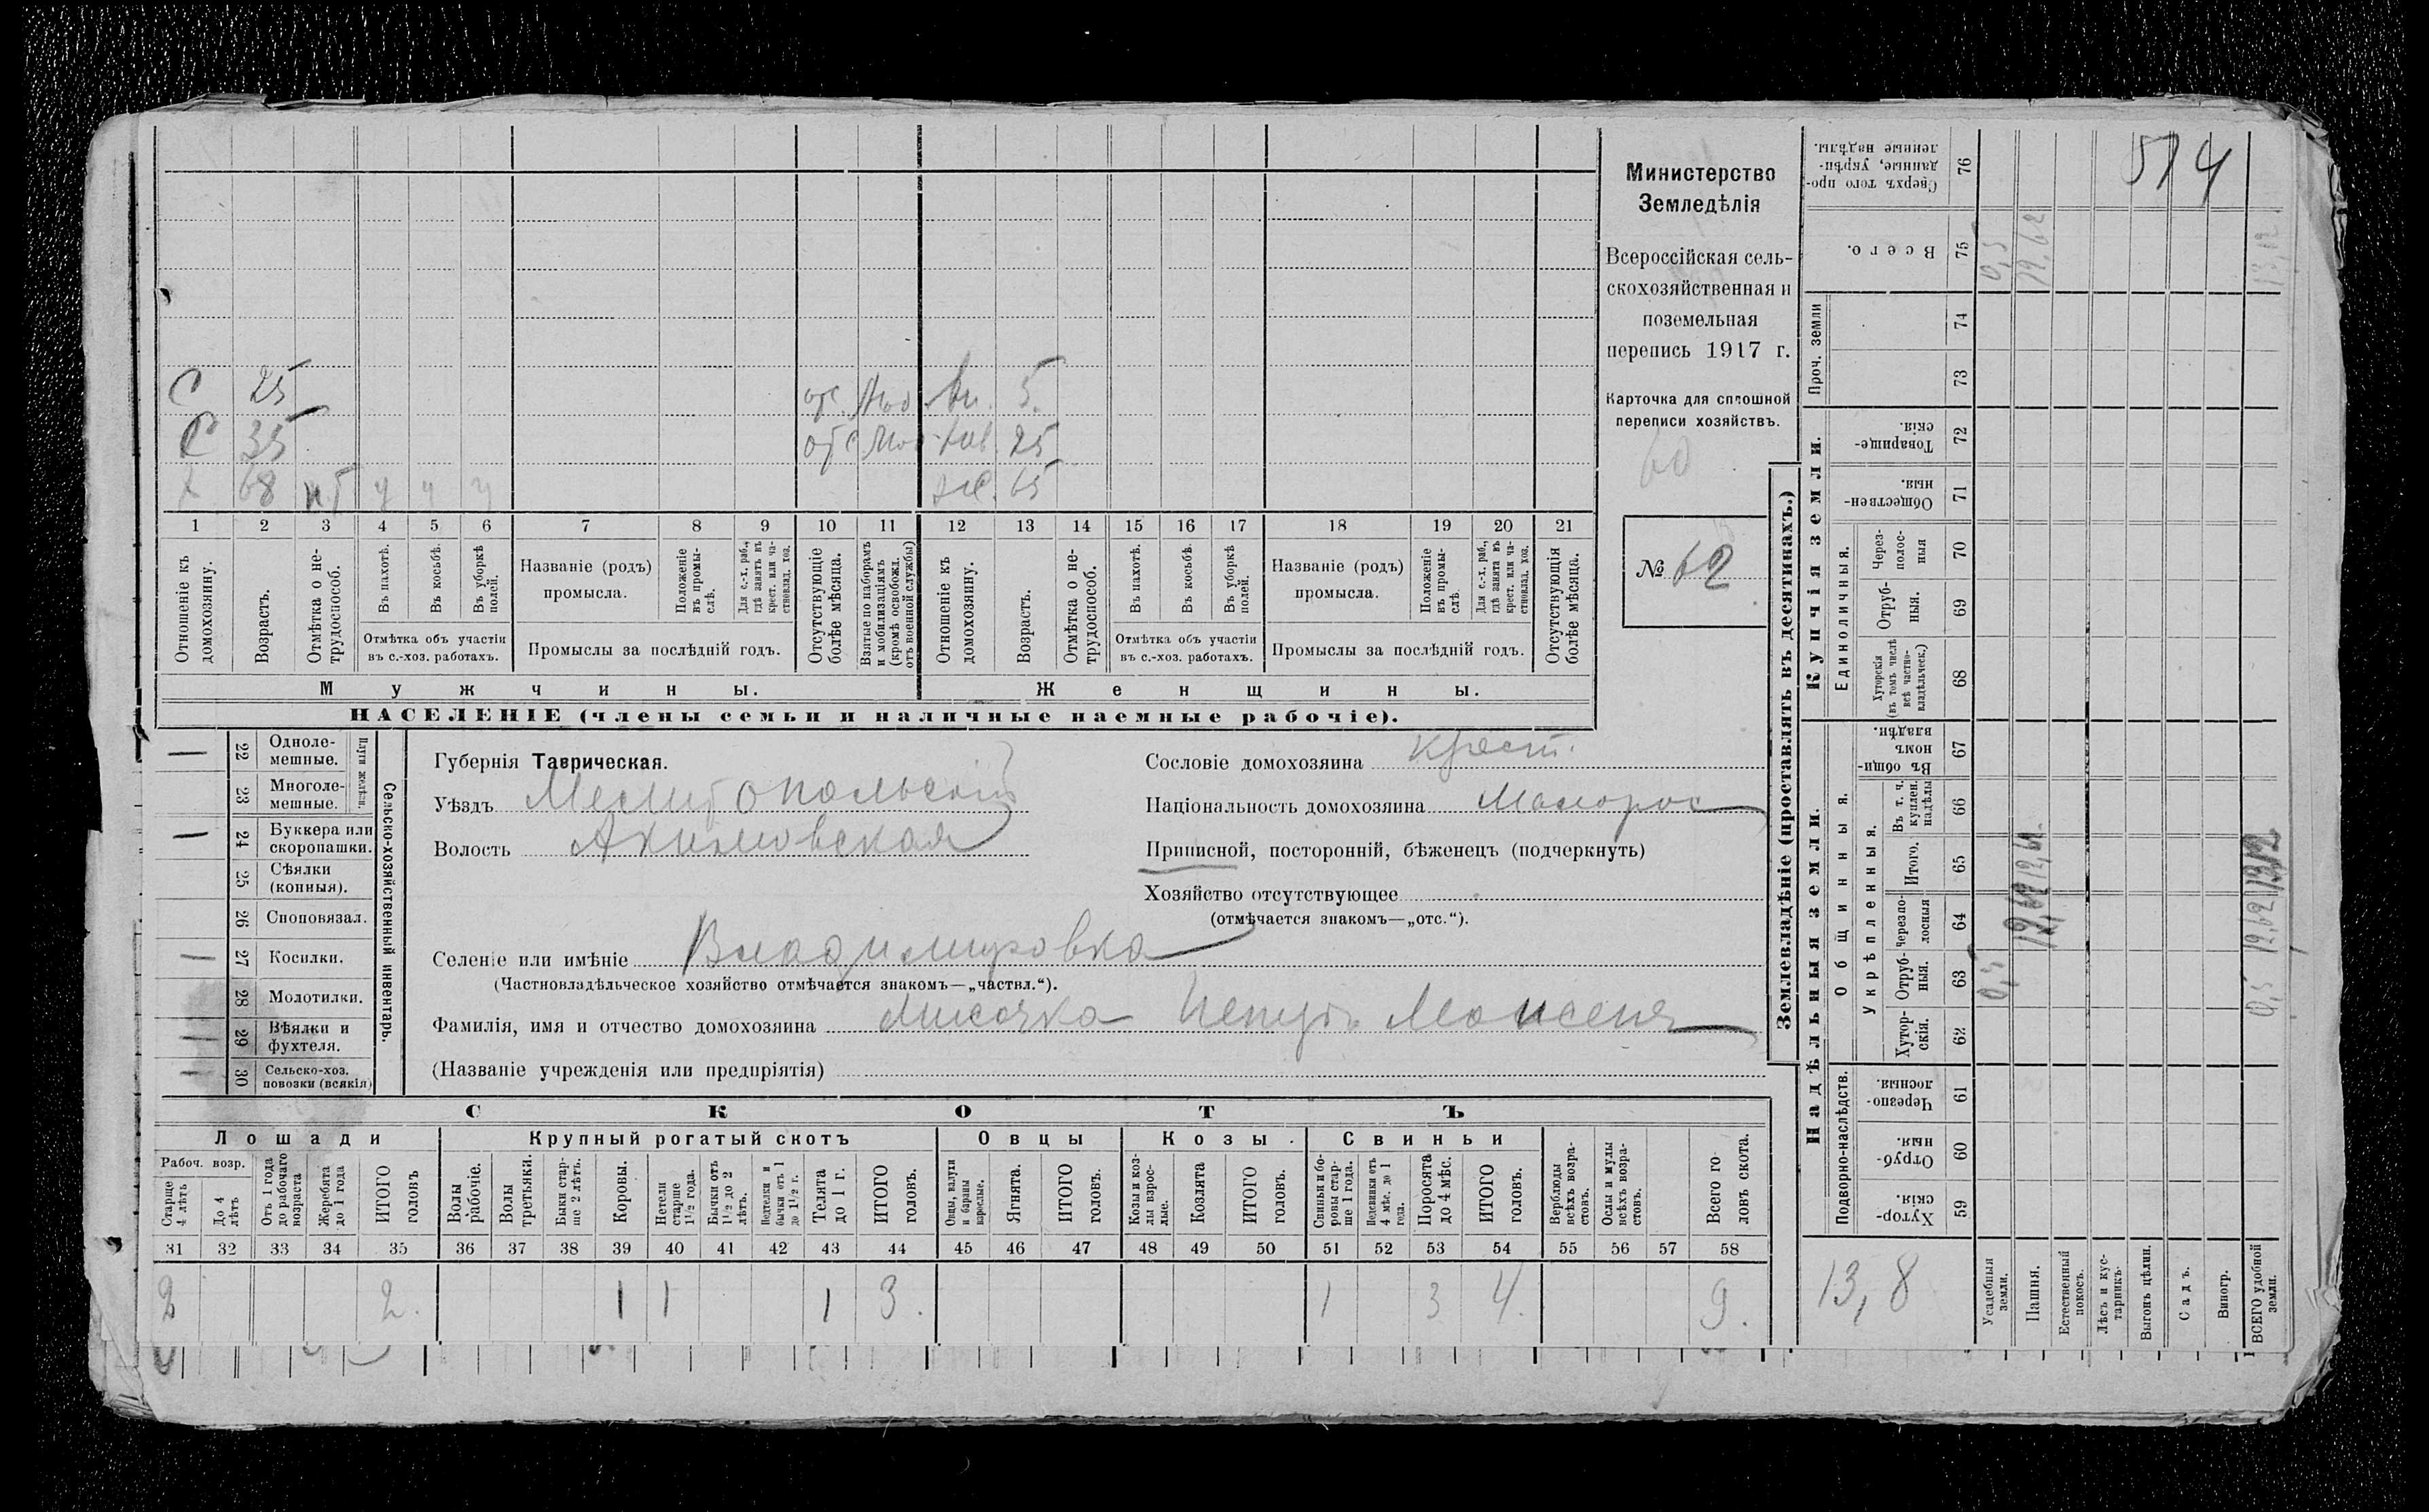 С 25 отс. 5.
С 35 отс 25
Х 68 н.т у у у ж. 65
1 2 3 4 5 6 7 8 9 10 11 12 13 14 15 16 17 18 19 20 21
Отношеніе къ домохозяину.
Возрастъ.
Отмѣтка о не-трудоспособ.
Въ пахотѣ.
Въ косьбѣ.
Въ уборкѣ полей.
Отмѣтка объ участіи въ с.-хоз. работахъ.
Названіе (родъ) промысла.
Положеніе въ промы-слѣ.
Для с.-х. раб., гдѣ занятъ въ крест. или ча-стновлад. хоз.
Промыслы за послѣдній годъ.
Отсутствующіе болѣе мѣсяца.
Взятые по наборамъ и мобилизаціямъ (кромѣ освобожд. отъ военной службы)
Отношеніе къ домохозяину.
Возрастъ.
Отмѣтка о не-трудоспособ.
Въ пахотѣ.
Въ косьбѣ.
Въ уборкѣ полей.
Отмѣтка объ участіи въ с.-хоз. работахъ.
Названіе (родъ) промысла.
Положеніе въ промы-слѣ.
Для с.-х. раб., гдѣ занята въ крест. или ча-стновлад. хоз.
Промыслы за послѣдній годъ.
Отсутствующія болѣе мѣсяца.
Мужчины.
Женщины.
НАСЕЛЕНІЕ (члены семьи и наличные наемные рабочіе).
Министерство
Земледѣлія
Всероссійская сель-
скохозяйственная и
поземельная
перепись 1917 г.
Карточка для сплошной
переписи хозяйствъ.
60
№ 62
Сельско-хозяйственный инвентарь.
Плуги желѣзн.
1 22 Одноле-мешные.
23 Многоле-мешные.
1 24 Буккера или скоропашки.
25 Сѣялки (конныя).
26 Споповязал.
1 27 Косилки.
28 Молотилки.
29 Вѣялки и фухтеля.
30 Сельско-хоз. повозки (всякія)
Губернія Таврическая.
Уѣздъ Мелитопольскій
Волость Акимовская
Сословіе домохозяина крест.
Національность домохозяина Малорос
Приписной, посторонній, бѣженецъ (подчеркнуть)
Хозяйство отсутствующее
(отмѣчается знакомъ—„отс.“).
Селеніе или имѣніе Владимировка
(Частновладѣльческое хозяйство отмѣчается знакомъ—„частвл.“).
Фамилія, имя и отчество домохозяина
(Названіе учрежденія или предпріятія)
СКОТЪ
Лошади
Крупный рогатый скотъ
Овцы
Козы.
Свиньи
Рабоч. возр.
Старше 4 лѣтъ
До 4 лѣтъ
Отъ 1 года до рабочаго возраста
Жеребята до 1 года
ИТОГО головъ
Волы рабочіе.
Волы третьяки.
Быки стар-ше 2 лѣтъ.
Коровы.
Нетели старше 1½ года.
Бычки отъ 1½ до 2 лѣтъ.
Подтелки и бычки отъ 1 до 1½ г.
Телята до 1 г.
ИТОГО головъ.
Овцы, валухи и бараны взрослые.
Ягнята.
ИТОГО головъ.
Козы и коз-лы взрос-лые.
Козлята
ИТОГО головъ.
Свиньи и бо-ровы стар-ше 1 года.
Подсвинки отъ 4 мѣс. до 1 года.
Поросята до 4 мѣс.
ИТОГО головъ.
Верблюды всѣхъ возра-стовъ.
Ослы и мулы всѣхъ возра-стовъ.
Всего го ловъ скота.
31 32 33 34 35 36 37 38 39 40 41 42 43 44 45 46 47 48 49 50 51 52 53 54 55 56 57 58
2 2. 1 1 1 3. 1 3 4. 9.
Землевладѣніе (проставлять въ десятинахъ.)
Купчія земли.
Надѣльныя земли.
Сверхъ того про-данные, укрѣп-ленные надѣлы. 76
Всего. 75
Проч. земли 74 73
Товарище-скія. 72
Обществен-ныя. 71
Единоличныя.
Через-полос-ныя 70
Отруб-ныя. 69
Хуторскія (въ томъ числѣ всѣ частно-владѣльческ.) 68
Общинныя.
Въ общи-номъ владѣн. 67
Укрѣпленныя.
Въ т. ч. куплен. надѣлы 66
Итого. 65
Черезпо-лосныя 64
Отруб-ныя. 63
Хутор-скія. 62
Подворно-наслѣдств.
Черезпо-лосныя. 61
Отруб-ныя. 60
Хутор-скія. 59
514
0,5 12,62 13,12
0,5 12,62
13,8
Усадебныя земли.
Пашня.
Естественный покосъ.
Лѣсъ и кус-тарникъ.
Выгонъ цѣлин.
Садъ.
Виногр.
ВСЕГО удобной земли.